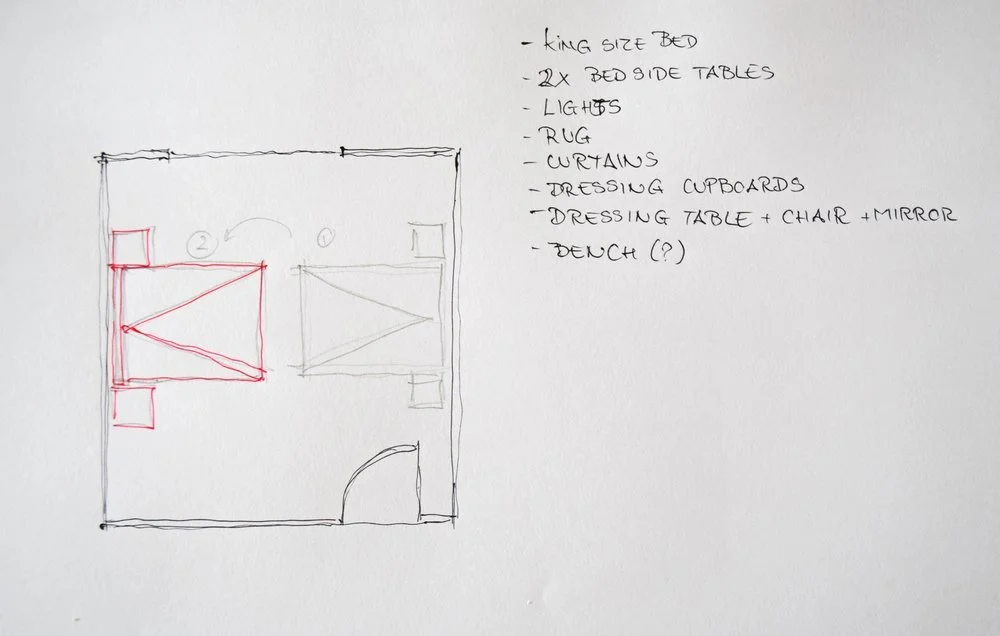 - KING SIZE BED
- 2X BEDSIDE TABLES
- LIGHTS
- RUG
- CURTAINS
- DRESSING CUPBOARDS
- DRESSING TABLE + CHAIR + MIRROR
- BENCH (?)
2 1